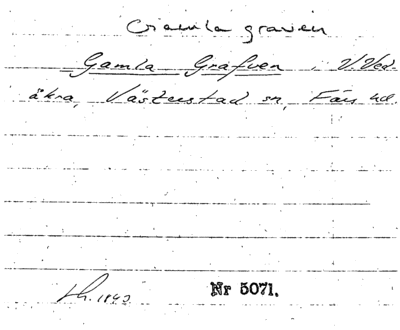 Gamla graven
Gamla Grafven, V. Ved-
åkra, Västerstad sn, Färs hd.
Lh. 1843
Nr 5071.